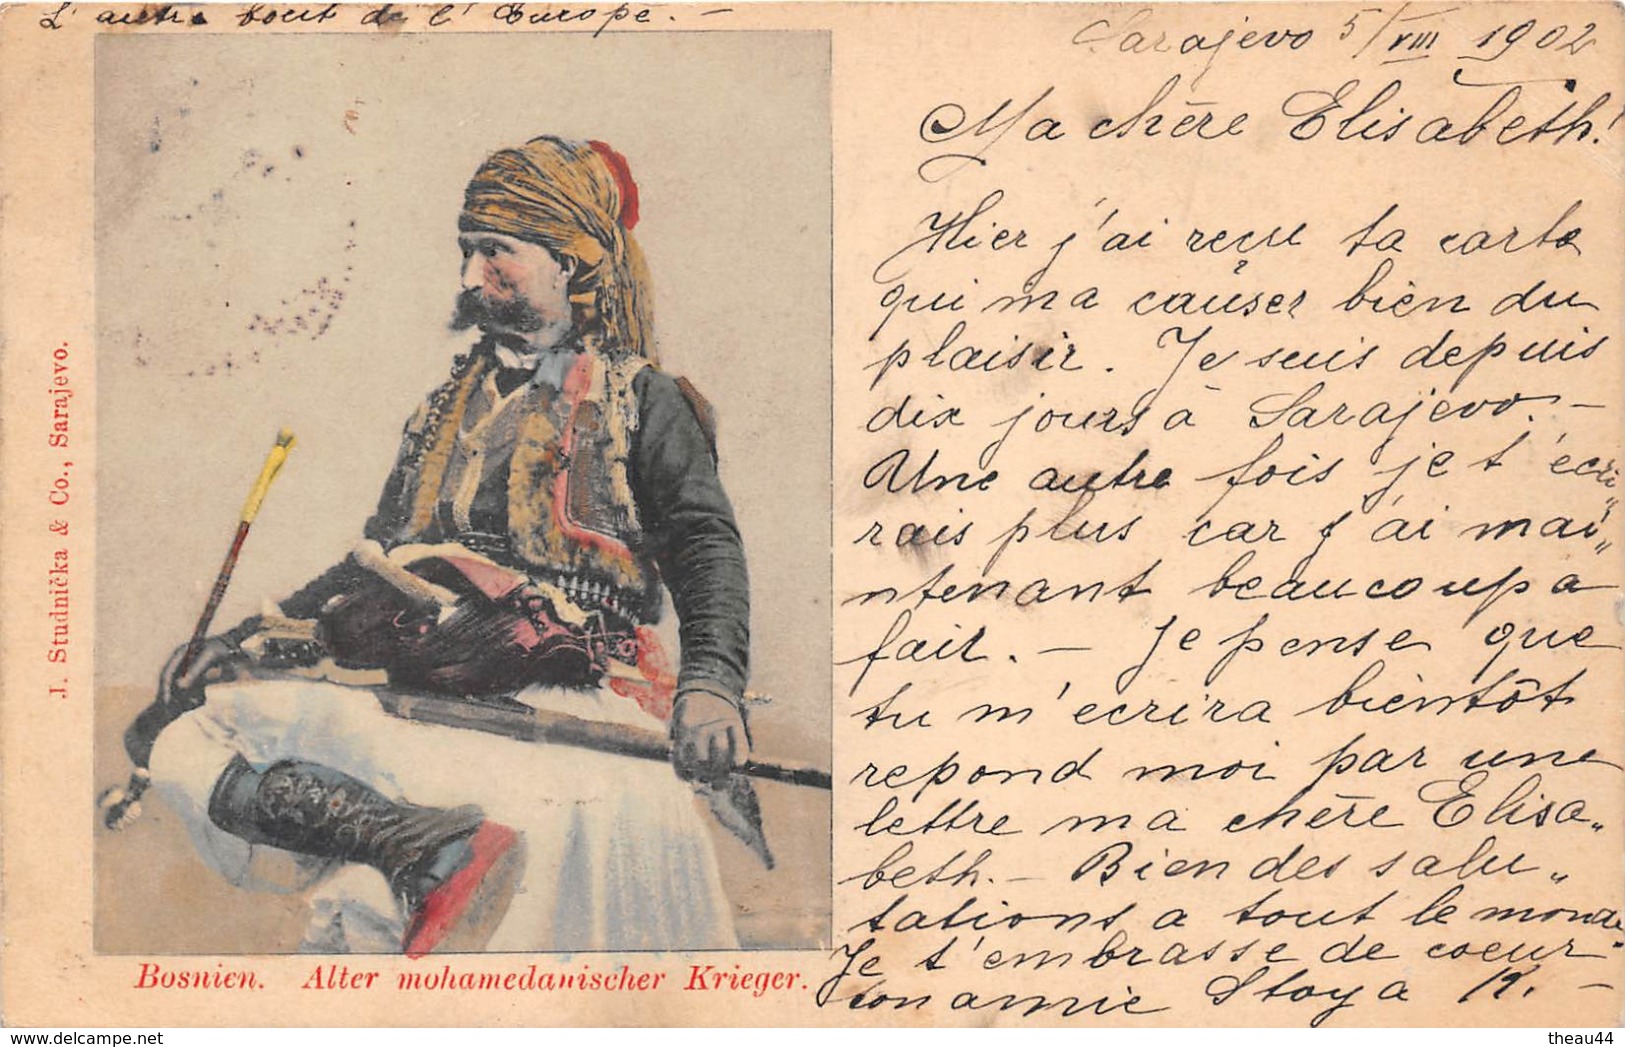 L'autre bout de l'Europe. –
Sarajevo 5/VIII 1902
Ma chère Elisabeth!
Hier j'ai reçu ta carte
qui m'a causer bien du
plaisir. Je suis depuis
dix jours à Sarajevo. –
Une autre fois je t'écri„
rais plus car j'ai mai„
ntenant beaucoup a
fair. – Je pense que
tu m'ecrira bientôt
repond moi par une
lettre ma chère Elisa„
beth. – Bien des salu„
tations a tout le monde.
Je t'embrasse de coeur
ton amie Stoya K. –
J. Studnička & Co., Sarajevo.
Bosnien. Alter mohamedanischer Krieger.
theau44